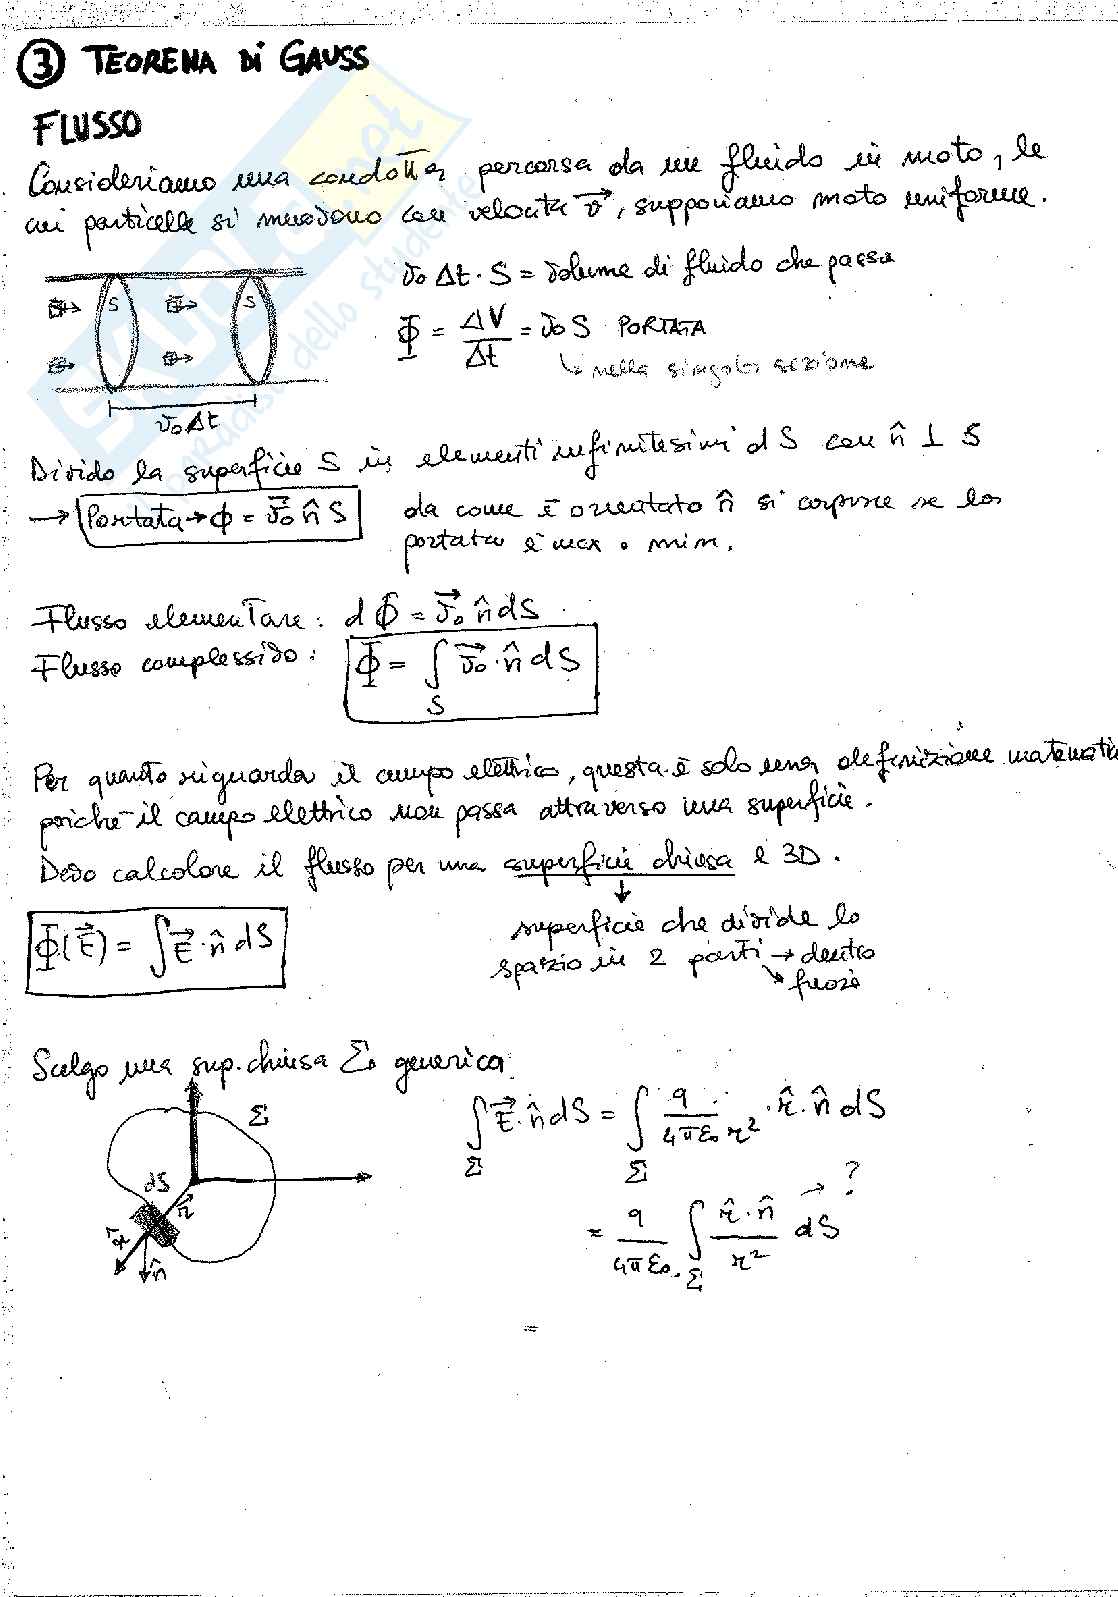 ③ TEOREMA Di GAUSS
FLUSSO
Consideriamo una condotta percorsa da un fluido in moto, le
cui particelle si muovono con velocità v⃗, supponiamo moto uniforme.
v₀ Δt · S = volume di fluido che passa
S S
Φ = ΔV/Δt = v₀ S PORTATA
↳ nella singola sezione
v₀ Δt
Divido la superficie S in elementi infinitesimi dS con n̂ ⊥ S
→ Portata → Φ = v⃗₀ n̂ S
da come è orientato n̂ si capisce se la
portata è max o min.
Flusso elementare: dΦ = v⃗₀ n̂ dS
Flusso complessivo: Φ = ∫_S v⃗₀ · n̂ dS
Per quanto riguarda il campo elettrico, questa è solo una definizione matemati
poiché il campo elettrico non passa attraverso una superficie.
Devo calcolare il flusso per una superficie chiusa e 3D.
↓
superficie che divide lo
spazio in 2 parti → dentro
↘ fuori
Φ(E⃗) = ∫ E⃗ · n̂ dS
Scelgo una sup. chiusa Σ generica
Σ
dS
r⃗
r̂
n̂
∫_Σ E⃗ · n̂ dS = ∫_Σ q/(4πε₀ r²) · r̂ · n̂ dS
= q/(4πε₀) ∫_Σ (r̂ · n̂)/r² dS → ?
=
.net
dello studente